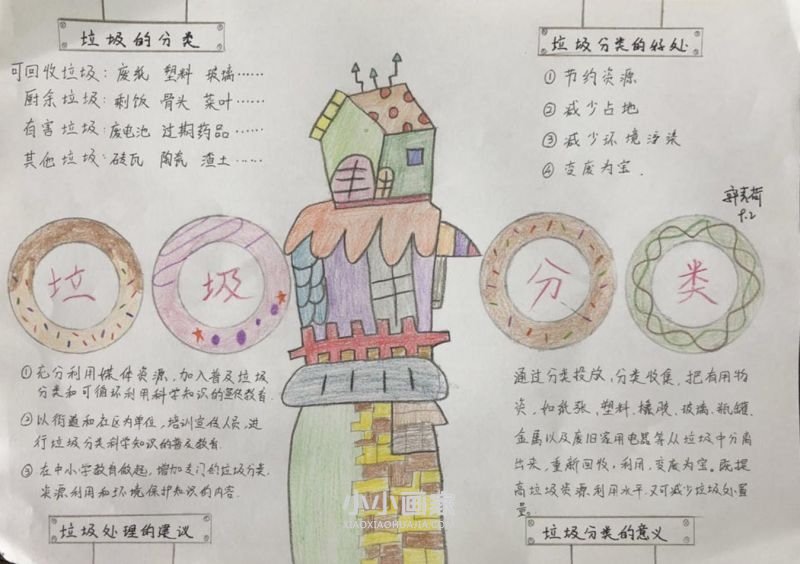 垃圾的分类
可回收垃圾：废纸 塑料 玻璃……
厨余垃圾：剩饭 骨头 菜叶……
有害垃圾：废电池 过期药品……
其他垃圾：砖瓦 陶瓷 渣土……
垃圾分类的好处
①节约资源
②减少占地
③减少环境污染
④变废为宝.
9.2
垃 圾 分 类
①充分利用媒体资源，加入普及垃圾
分类和可循环利用科学知识的教育.
②以街道和社区为单位，培训宣传人员，进
行垃圾分类科学知识的普及教育.
③在中小学教育做起，增加专门的垃圾分类.
资源利用和环境保护知识的内容.
垃圾处理的建议
通过分类投放，分类收集，把有用物
资，如纸张、塑料、橡胶、玻璃、瓶罐、
金属以及废旧家用电器等从垃圾中分离
出来，重新回收，利用，变废为宝。既提
高垃圾资源利用水平，又可减少垃圾处置
量。
垃圾分类的意义
小小画家
XIAOXIAOHUAJIA.COM